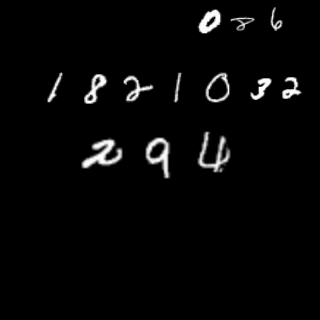 0 8 6
1 8 2 1 0 3 2
2 9 4